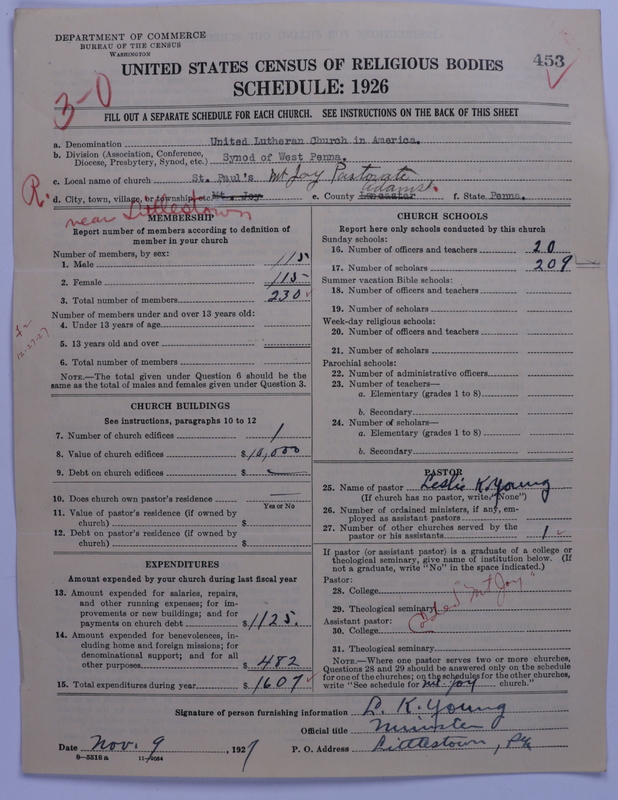 DEPARTMENT OF COMMERCE
BUREAU OF THE CENSUS
WASHINGTON
453
UNITED STATES CENSUS OF RELIGIOUS BODIES
SCHEDULE: 1926
3-0
FILL OUT A SEPARATE SCHEDULE FOR EACH CHURCH. SEE INSTRUCTIONS ON THE BACK OF THIS SHEET
a. Denomination United Lutheran Church in America.
b. Division (Association, Conference, Diocese, Presbytery, Synod, etc.) Synod of West Penna.
c. Local name of church St. Paul's Mt Joy Pastorate
R. d. City, town, village, or township, etc. Mt. Joy e. County Lancaster Adams. f. State Penna.
near Littlestown
MEMBERSHIP
Report number of members according to definition of
member in your church
Number of members, by sex:
1. Male 115
2. Female 115
3. Total number of members 230
Number of members under and over 13 years old:
4. Under 13 years of age
5. 13 years old and over
12-27-27
6. Total number of members
NOTE.—The total given under Question 6 should be
same as the total of males and females given under Question 3.
CHURCH BUILDINGS
See instructions, paragraphs 10 to 12
7. Number of church edifices 1
8. Value of church edifices $10,000
9. Debt on church edifices $
10. Does church own pastor's residence
Yes or No
11. Value of pastor's residence (if owned by
church) $
12. Debt on pastor's residence (if owned by
church) $
EXPENDITURES
Amount expended by your church during last fiscal year
13. Amount expended for salaries, repairs,
and other running expenses; for im-
provements or new buildings; and for
payments on church debt $1125.
14. Amount expended for benevolences, in-
cluding home and foreign missions; for
denominational support; and for all
other purposes $ 482
15. Total expenditures during year $ 1607
CHURCH SCHOOLS
Report here only schools conducted by this church
Sunday schools:
16. Number of officers and teachers 20
17. Number of scholars 209
Summer vacation Bible schools:
18. Number of officers and teachers
19. Number of scholars
Week-day religious schools:
20. Number of officers and teachers
21. Number of scholars
Parochial schools:
22. Number of administrative officers
23. Number of teachers—
a. Elementary (grades 1 to 8)
b. Secondary
24. Number of scholars—
a. Elementary (grades 1 to 8)
b. Secondary
PASTOR
25. Name of pastor Leslie K. Young
(If church has no pastor, write "None")
26. Number of ordained ministers, if any, em-
ployed as assistant pastors
27. Number of other churches served by the
pastor or his assistants 1
If pastor (or assistant pastor) is a graduate of a college or
theological seminary, give name of institution below. (If
not a graduate, write "No" in the space indicated.)
Pastor:
28. College
29. Theological seminary
Coded "Mt Joy"
Assistant pastor:
30. College
31. Theological seminary
NOTE.—Where one pastor serves two or more churches,
Questions 28 and 29 should be answered only on the schedule
for one of the churches; on the schedules for the other churches,
write "See schedule for Mt. Joy church."
Signature of person furnishing information L. K. Young
Official title Minister
Date Nov. 9, 1927 P. O. Address Littlestown, Pa
8—5518 a 11—9054